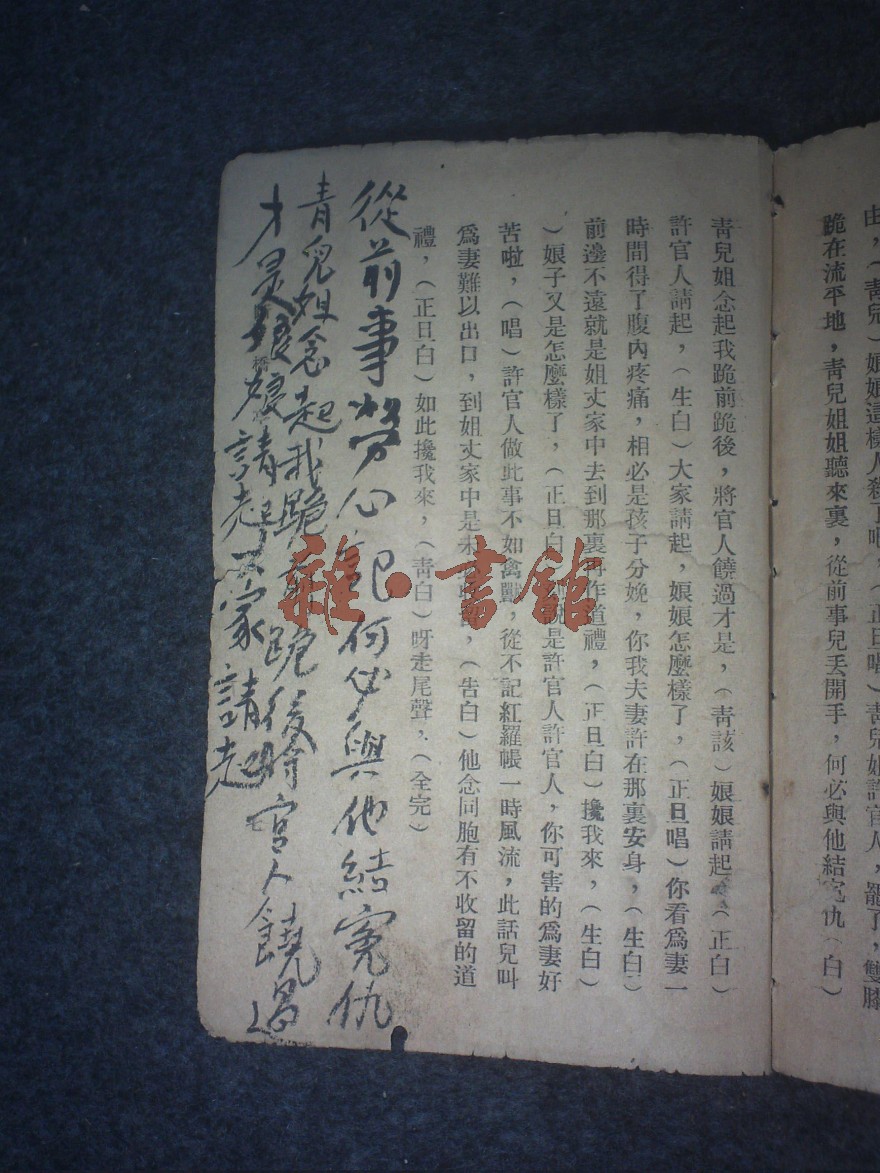 由，（青兒）娘娘這樣人殺了吧，（正旦唱）青兒姐許官人，罷了，雙膝
跪在流平地，青兒姐姐聽來裏，從前事兒丟開手，何必與他結冤仇（白）
青兒姐念起我跪前跪後，將官人饒過才是，（青該）娘娘請起，（正白）
許官人請起，（生白）大家請起，娘娘怎麼樣了，（正旦唱）你看爲妻一
時間得了腹內疼痛，相必是孩子分娩，你我夫妻許在那裏安身，（生白）
前邊不遠就是姐丈家中去到那裏再作道禮，（正旦白）攙我來，（生白）
）娘子又是怎麼樣了，（正旦白）是許官人許官人，你可害的爲妻好
苦啦，（唱）許官人做此事不如禽獸，從不記紅羅帳一時風流，此話兒叫
爲妻難以出口，到姐丈家中是未，（告白）他念同胞有不收留的道
禮，（正旦白）如此攙我來，（青白）呀走尾聲，（全完）
從前事勞心記何必與他結冤仇
青兒姐念起我跪前跪後將官人饒過
才是娘娘請起大家請起
橋
七
雜·書館